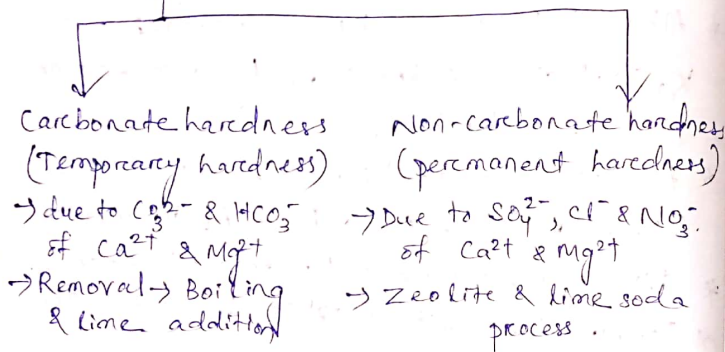 Carbonate hardness
(Temporary hardness)
→ due to CO₃²⁻ & HCO₃⁻
of Ca²⁺ & Mg²⁺
→ Removal → Boiling
& lime addition
Non-carbonate hardness
(permanent hardness)
→ Due to SO₄²⁻, Cl⁻ & NO₃⁻.
of Ca²⁺ & Mg²⁺
→ Zeolite & lime soda
process.